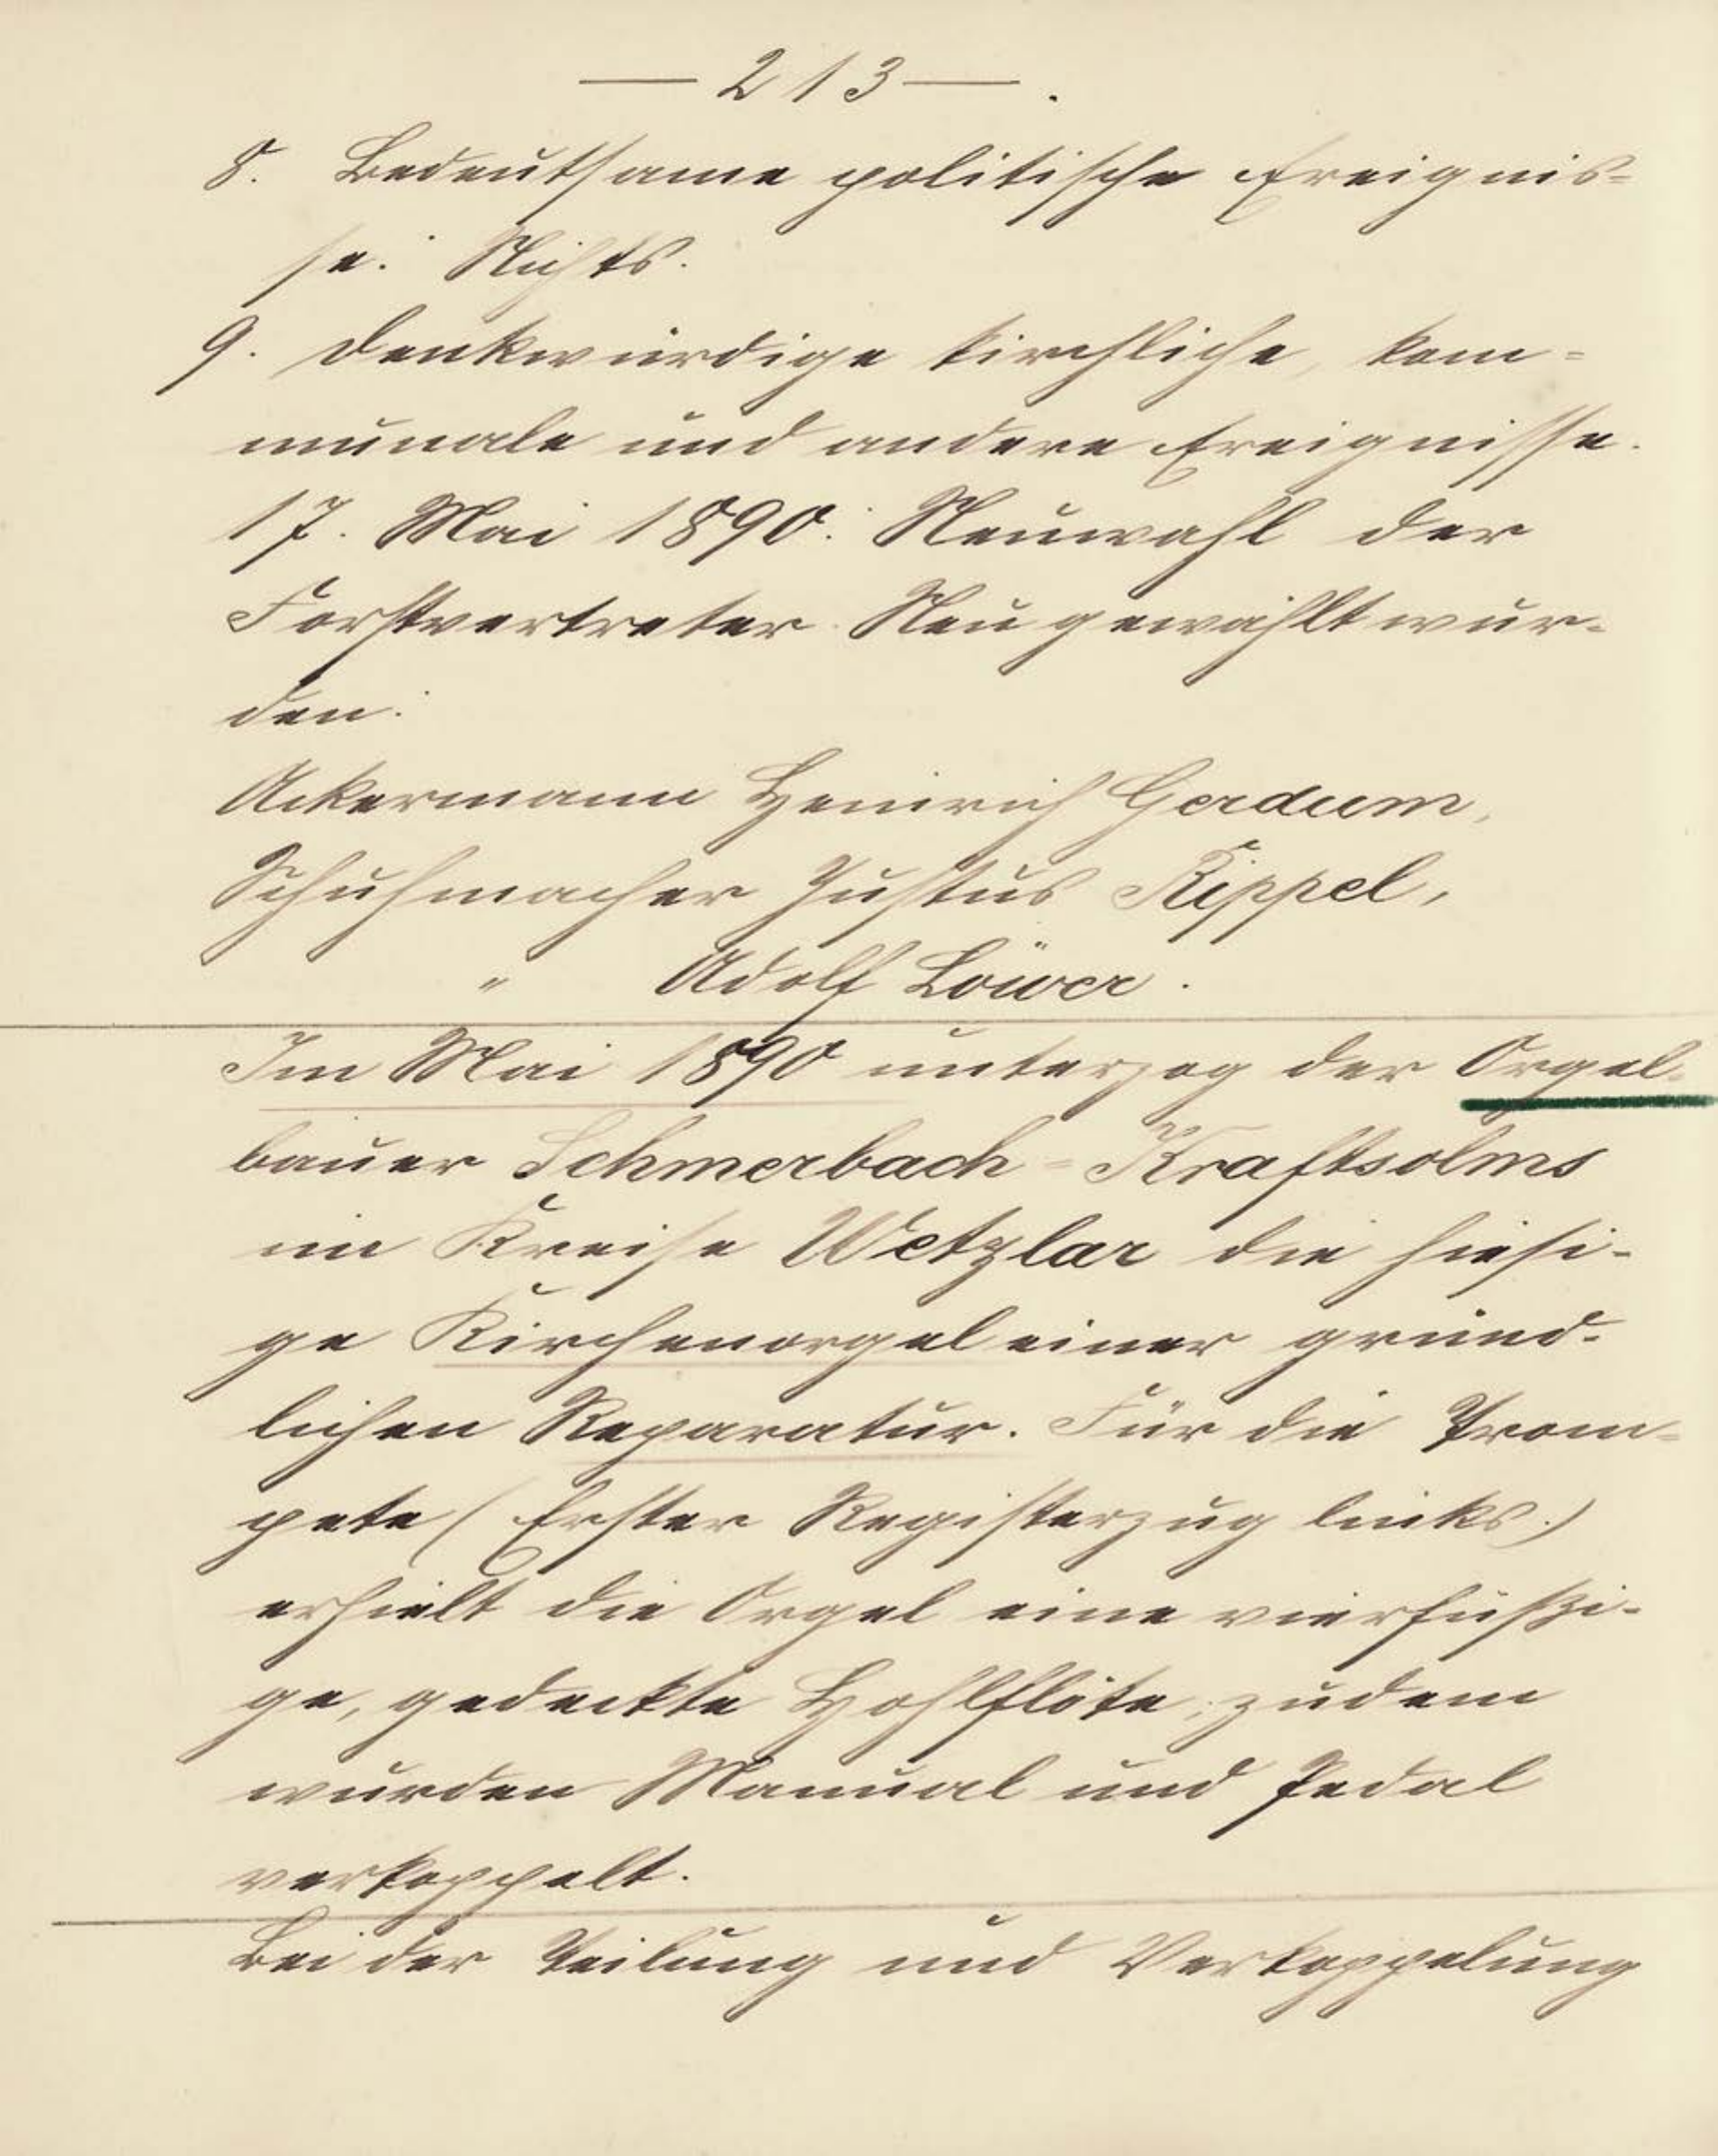 — 213 — .
8. Bedeutsame politische Ereignis=
se: Nichts.
9. Denkwürdige kirchliche, kom=
munale und andere Ereignisse.
17. Mai 1890: Neuwahl der
Forstvertreter. Neu gewählt wur-
den:
Ackermann Heinrich Gerdum,
Schuhmacher Justus Rippel,
" Adolf Löwer.
Im Mai 1890 unterzog der Orgel-
bauer Schmerbach = Kraftsolms
im Kreise Wetzlar die hiesi-
ge Kirchenorgel einer gründ-
lichen Reparatur. Für die Trom=
pete (Erster Registerzug links.)
erhielt die Orgel eine vierfüßi-
ge, gedeckte Hohlflöte; zudem
wurden Manual und Pedal
verkoppelt.
Bei der Teilung und Verkoppelung